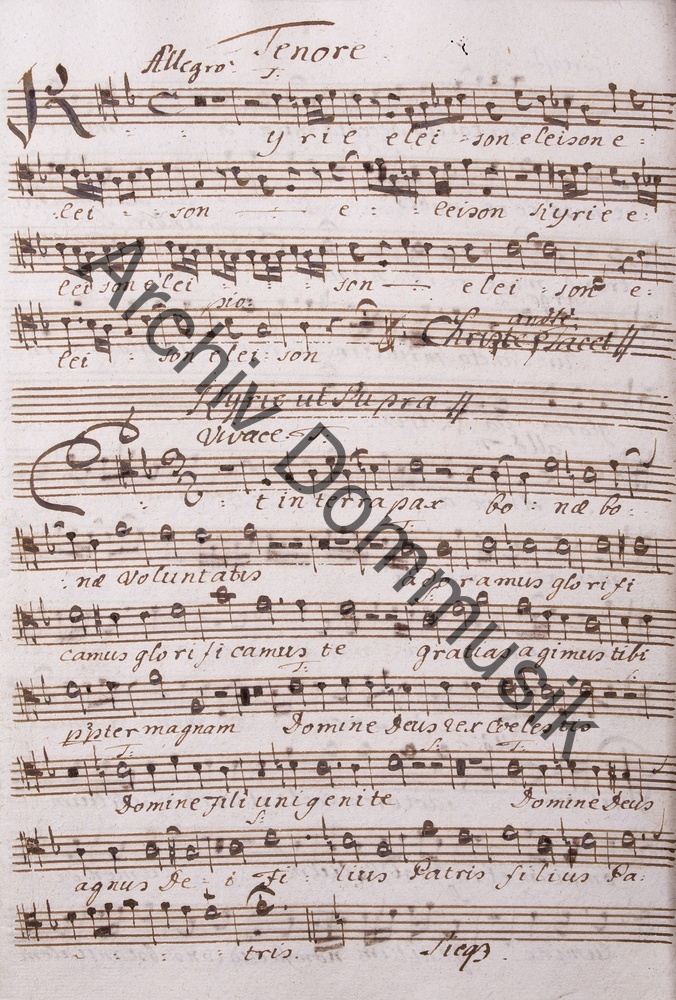 Tenore
Allegro T.
Kyrie elei - son eleison e -
lei - son e - leison Kyrie e:
leison elei - son elei - son e:
pio: andte
lei - son elei - son Christe tacet
Kyrie ut Supra
Vivace T.
t in terra pax bo - næ bo -
næ voluntatis adoramus glorifi
camus glorificamus te gratias agimus tibi
T.
ppter magnam Domine Deus rex coelestis
T. S. T.
Domine fili unigenite Domine Deus
S.
agnus De - i Fi - lius Patris filius Pa:
tris.
Archiv Dommusik